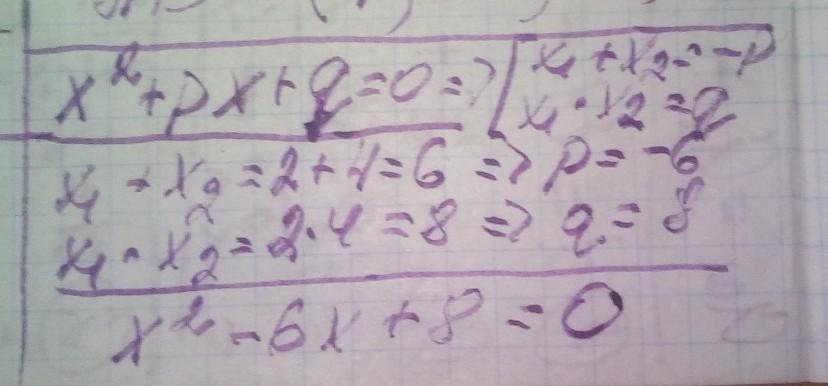 x²+px+q=0=>[x₁+x₂=-p
x₁·x₂=q
x₁+x₂=2+4=6=>p=-6
x₁·x₂=2·4=8=>q=8
x²-6x+8=0